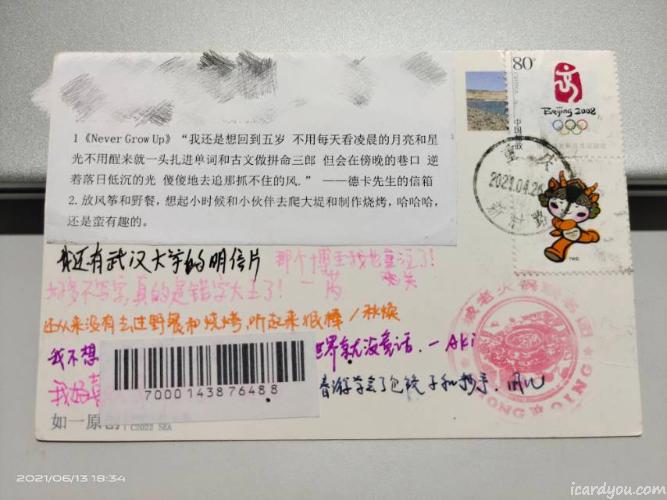 80分
中国邮政
Beijing 2008
2021.04.26
1《Never Grow Up》 “我还是想回到五岁 不用每天看凌晨的月亮和星
光不用醒来就一头扎进单词和古文做拼命三郎 但会在傍晚的巷口 逆
着落日低沉的光 傻傻地去追那抓不住的风.” ——德卡先生的信箱
2.放风筝和野餐，想起小时候和小伙伴去爬大堤和制作烧烤，哈哈哈，
还是蛮有趣的。
我还有武汉大学的明信片
那个博主我也关注了！
好多不写字，真的是错字大王了！
还从来没有去过野餐和烧烤，听起来很棒
我不想
世界就没童话。
我好喜
春游学会了包饺子和抄手.
7000143876488
火锅
CHONG QING
如一原创
C2022 SEA
2021/06/13 18:34
icardyou.com